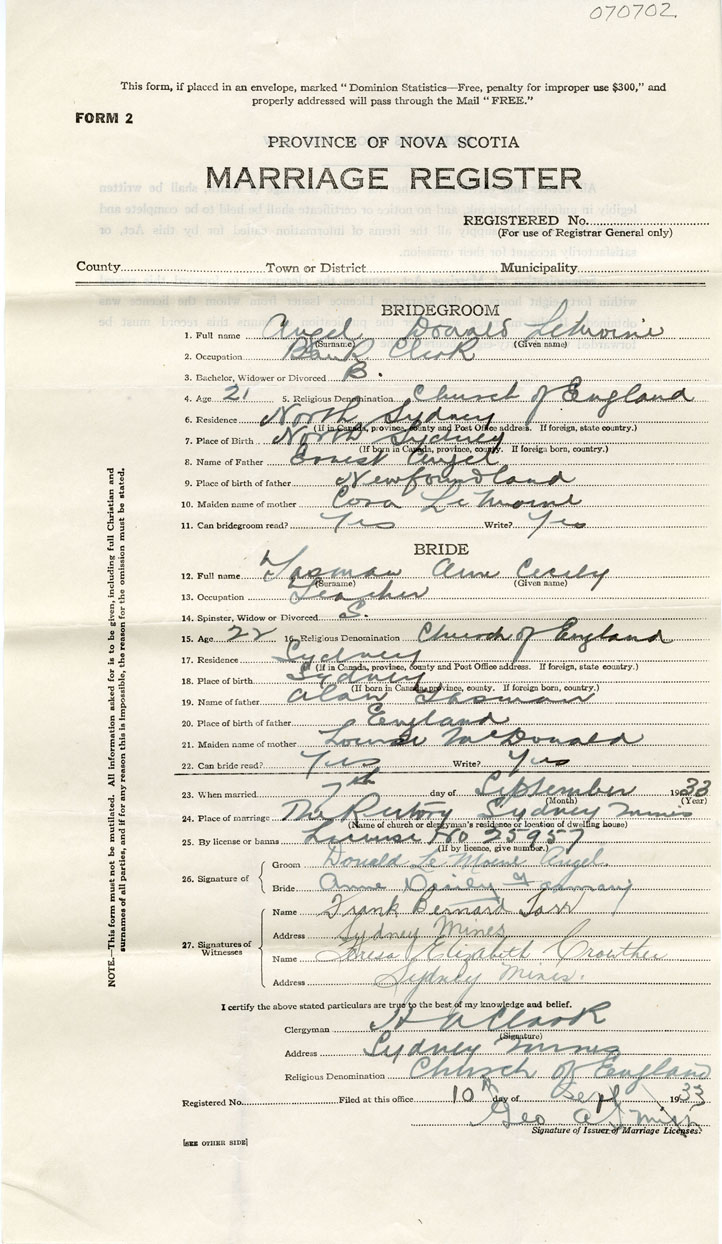 070702
This form, if placed in an envelope, marked "Dominion Statistics—Free, penalty for improper use $300," and
properly addressed will pass through the Mail "FREE."
FORM 2
PROVINCE OF NOVA SCOTIA
MARRIAGE REGISTER
REGISTERED No.
(For use of Registrar General only)
County Town or District Municipality
BRIDEGROOM
1. Full name Angel Donald LeMoine
(Surname) (Given name)
2. Occupation Bank Clerk
3. Bachelor, Widower or Divorced B.
4. Age 21 5. Religious Denomination Church of England
6. Residence North Sydney
(If in Canada, province, county and Post Office address. If foreign, state country.)
7. Place of Birth North Sydney
(If born in Canada, province, county. If foreign born, country.)
8. Name of Father Ernest Angel
9. Place of birth of father Newfoundland
10. Maiden name of mother Cora LeMoine
11. Can bridegroom read? Yes Write? Yes
BRIDE
12. Full name Tasman Anne Cecily
(Surname) (Given name)
13. Occupation Teacher
14. Spinster, Widow or Divorced S.
15. Age 22 16. Religious Denomination Church of England
17. Residence Sydney
(If in Canada, province, county and Post Office address. If foreign, state country.)
18. Place of birth Sydney
(If born in Canada, province, county. If foreign born, country.)
19. Name of father Alan Tasman
20. Place of birth of father England
21. Maiden name of mother Louise McDonald
22. Can bride read? Yes Write? Yes
23. When married 7th day of September 1933
(Month) (Year)
24. Place of marriage The Rectory Sydney Mines
(Name of church or clergyman's residence or location of dwelling house)
25. By license or banns License No 25957
(If by licence, give number.)
26. Signature of
Groom Donald Le Moine Angel
Bride Anne Tasman
27. Signatures of Witnesses
Name Frank Bernard
Address Sydney Mines
Name Teresa Elizabeth Crowther
Address Sydney Mines.
I certify the above stated particulars are true to the best of my knowledge and belief.
Clergyman H A Clark
(Signature)
Address Sydney Mines
Religious Denomination Church of England
Registered No. Filed at this office 10th day of Sept 1933
Geo A
Signature of Issuer of Marriage Licenses?
[SEE OTHER SIDE]
NOTE.—This form must not be mutilated. All information asked for is to be given, including full Christian and
surnames of all parties, and if for any reason this is impossible, the reason for the omission must be stated.